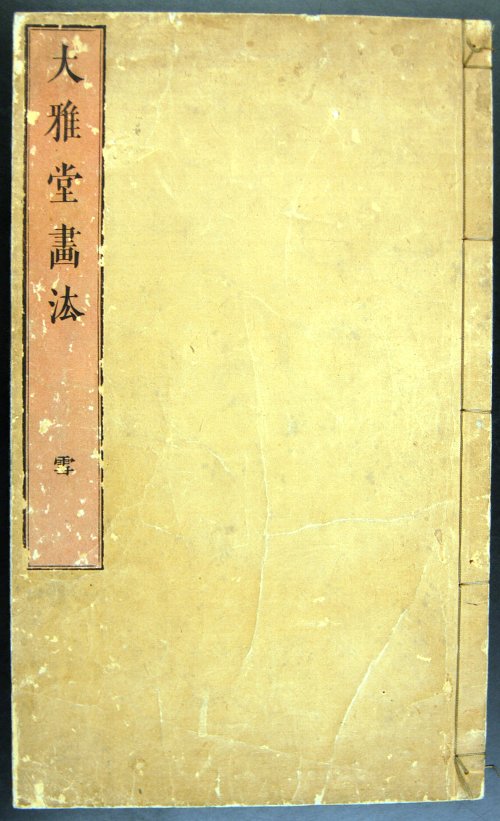 大雅堂畫法
雪